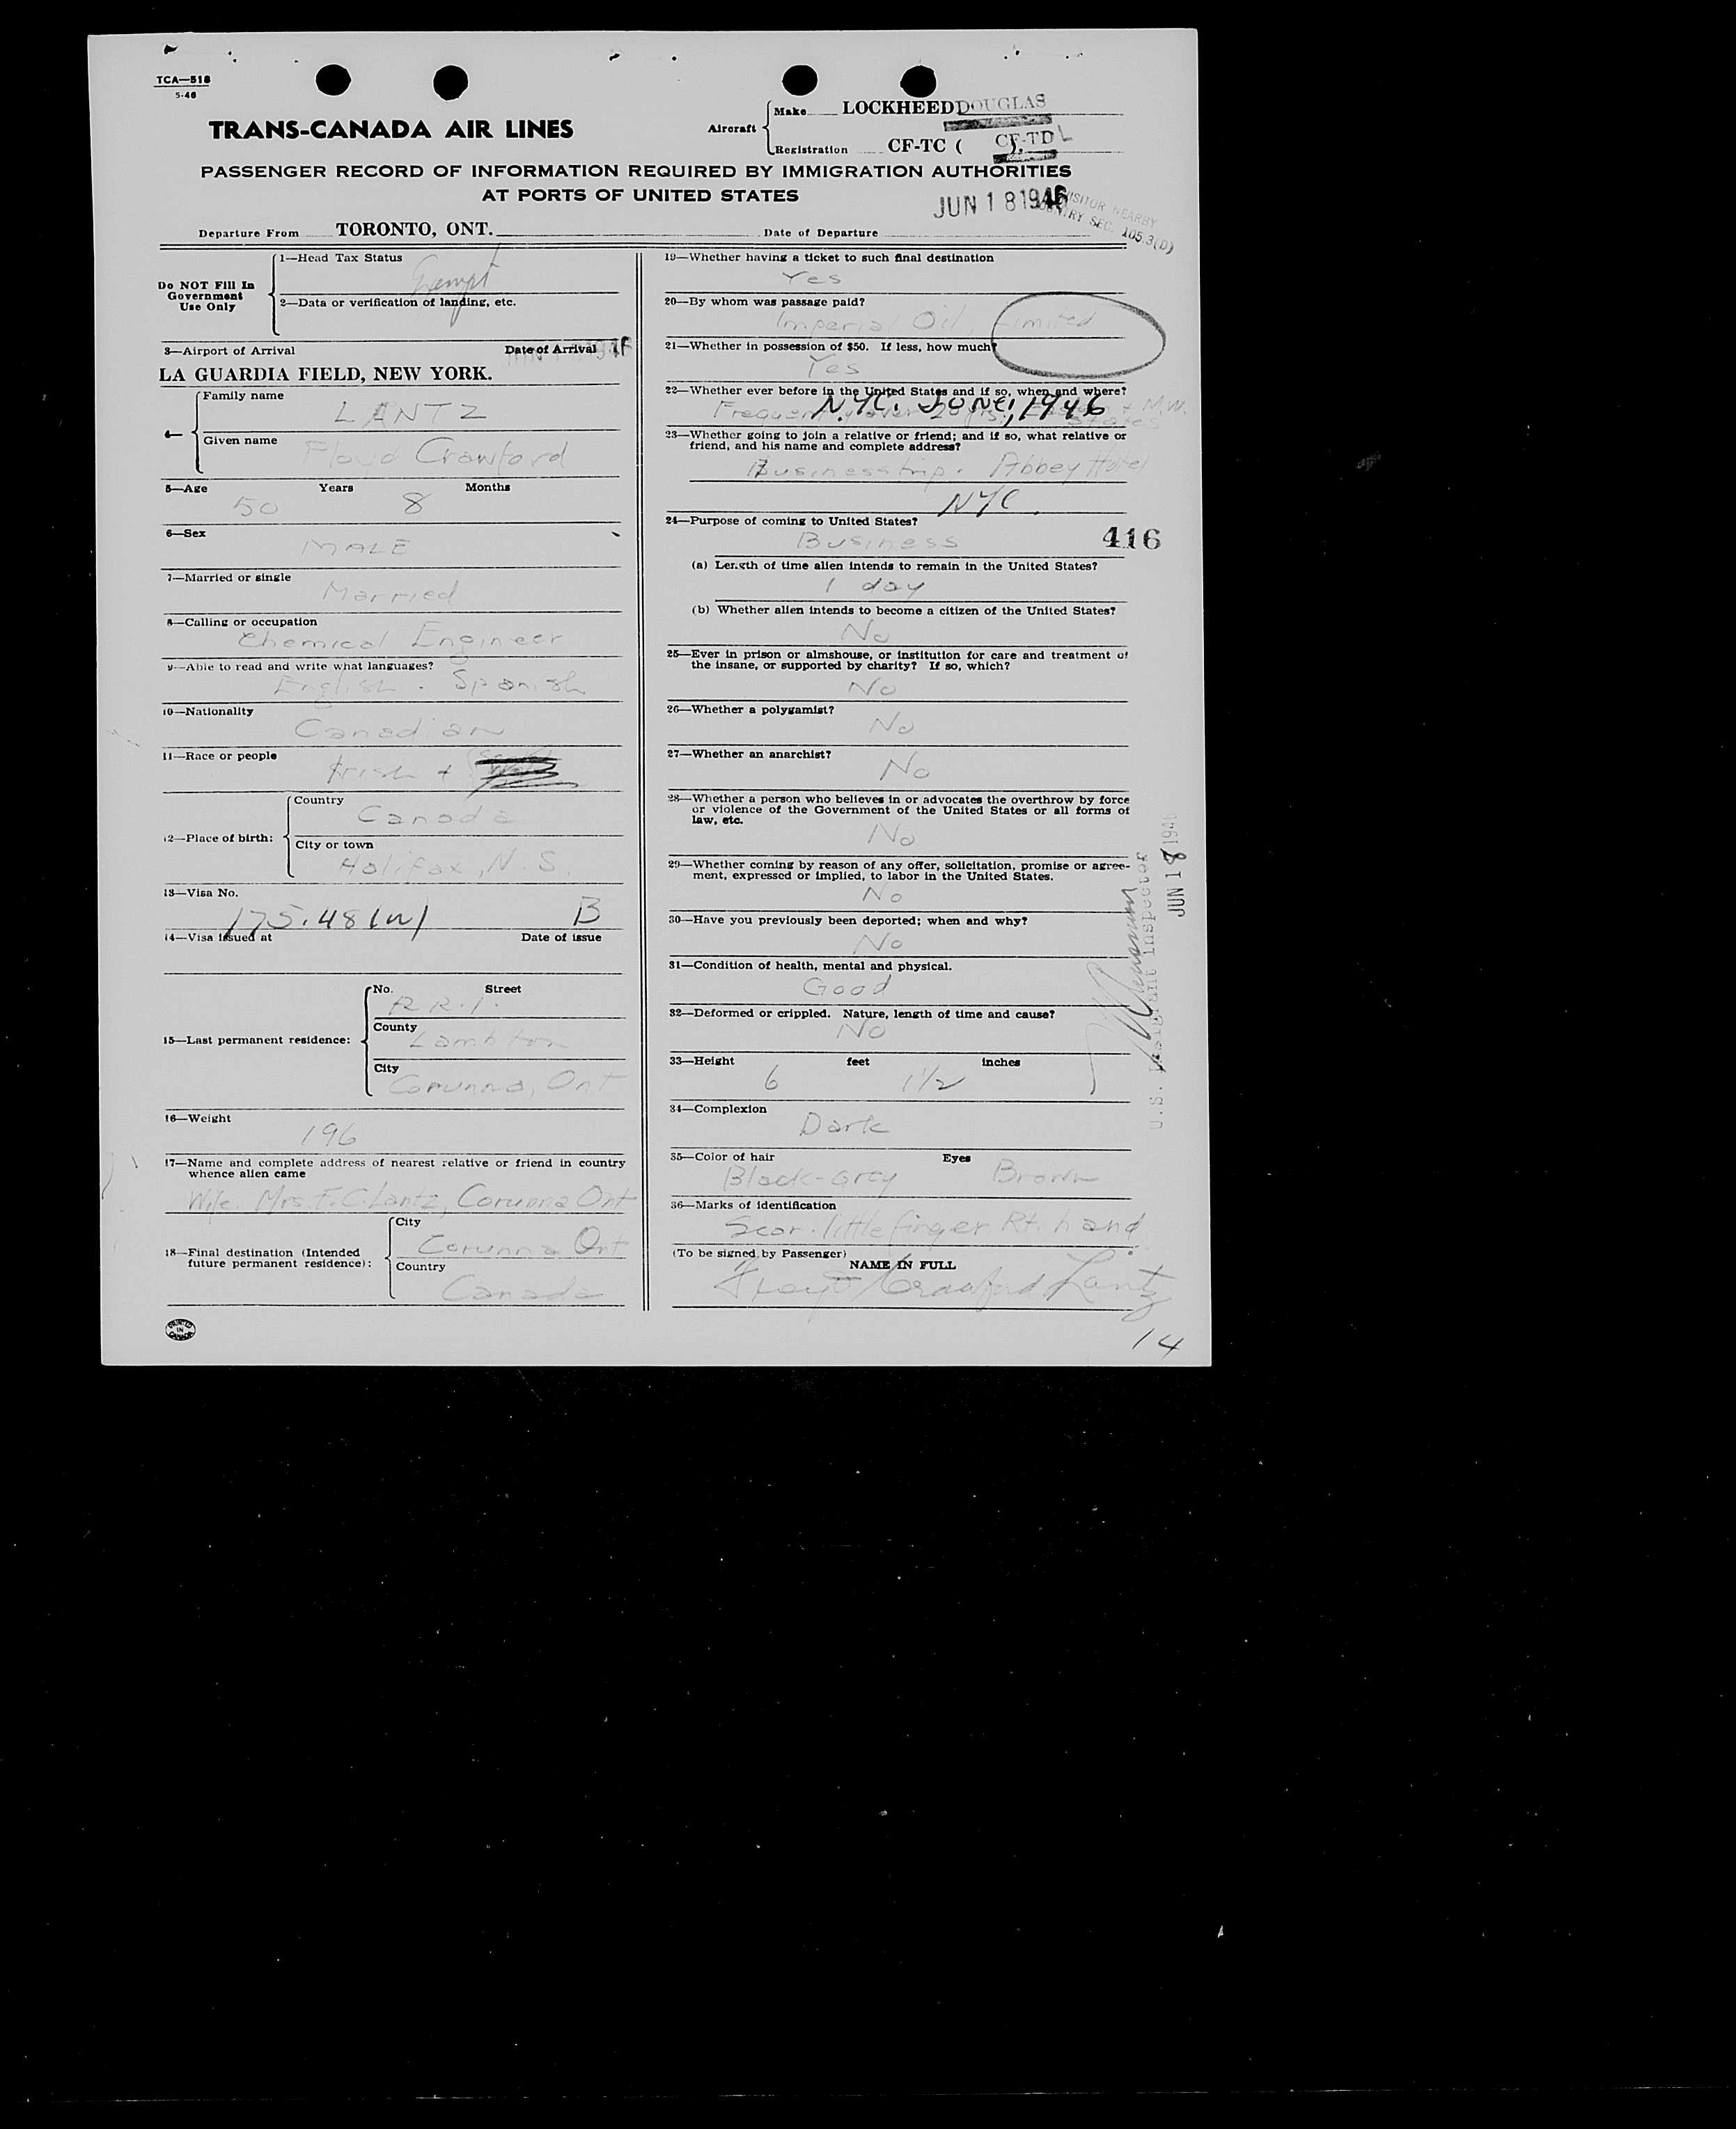 TCA—518
5-46
TRANS-CANADA AIR LINES
Aircraft
Make LOCKHEED DOUGLAS
Registration CF-TC ( ). CF-TDL
PASSENGER RECORD OF INFORMATION REQUIRED BY IMMIGRATION AUTHORITIES
AT PORTS OF UNITED STATES
JUN 18 1946
VISITOR NEARBY
COUNTRY SEC. 105.3(D)
Departure From TORONTO, ONT.
Date of Departure
Do NOT Fill In
Government
Use Only
1—Head Tax Status
Exempt
2—Data or verification of landing, etc.
3—Airport of Arrival Date of Arrival
LA GUARDIA FIELD, NEW YORK.
4—
Family name
LANTZ
Given name
Floyd Crawford
5—Age Years Months
50 8
6—Sex
MALE
7—Married or single
Married
8—Calling or occupation
Chemical Engineer
9—Able to read and write what languages?
English. Spanish
10—Nationality
Canadian
11—Race or people
Irish +
12—Place of birth:
Country
Canada
City or town
Halifax, N.S.
13—Visa No.
175.48(w) B
14—Visa issued at Date of issue
15—Last permanent residence:
No. Street
R.R.1.
County
Lambton
City
Corunna, Ont
16—Weight
196
17—Name and complete address of nearest relative or friend in country
whence alien came
Wife. Mrs. F.C. Lantz, Corunna Ont
18—Final destination (Intended
future permanent residence):
City
Corunna Ont
Country
Canada
PRINTED
IN
CANADA
19—Whether having a ticket to such final destination
Yes
20—By whom was passage paid?
Imperial Oil, Limited
21—Whether in possession of $50. If less, how much?
Yes
22—Whether ever before in the United States and if so, when and where?
N.Y.C. June, 1946
Frequently over + M.W.
States
23—Whether going to join a relative or friend; and if so, what relative or
friend, and his name and complete address?
Business trip. Abbey Hotel
NYC.
24—Purpose of coming to United States?
Business
416
(a) Length of time alien intends to remain in the United States?
1 day
(b) Whether alien intends to become a citizen of the United States?
No
25—Ever in prison or almshouse, or institution for care and treatment of
the insane, or supported by charity? If so, which?
No
26—Whether a polygamist?
No
27—Whether an anarchist?
No
28—Whether a person who believes in or advocates the overthrow by force
or violence of the Government of the United States or all forms of
law, etc.
No
29—Whether coming by reason of any offer, solicitation, promise or agree-
ment, expressed or implied, to labor in the United States.
No
30—Have you previously been deported; when and why?
No
31—Condition of health, mental and physical.
Good
32—Deformed or crippled. Nature, length of time and cause?
No
33—Height feet inches
6 1 1/2
34—Complexion
Dark
35—Color of hair Eyes
Black-Grey Brown
36—Marks of identification
Scar. little finger Rt. hand
(To be signed by Passenger)
NAME IN FULL
Floyd Crawford Lantz
14
U.S. Immigrant Inspector
JUN 18 1946